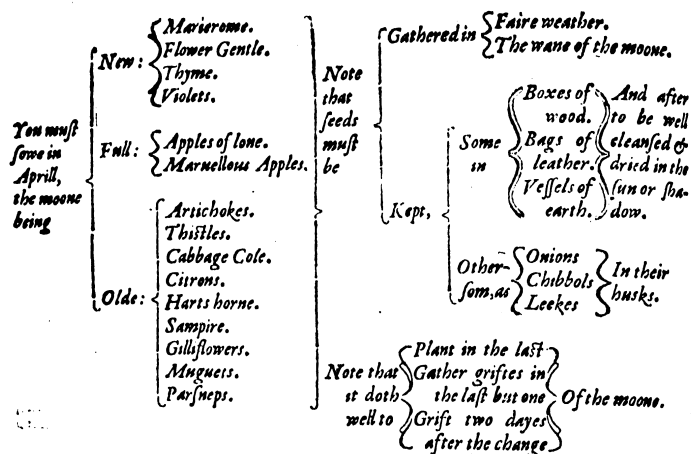 You must
ſowe in
Aprill,
the moone
being
New:
Marierome.
Flower Gentle.
Thyme.
Violets.
Full:
Apples of loue.
Maruellous Apples.
Olde:
Artichokes.
Thistles.
Cabbage Cole.
Citrons.
Harts horne.
Sampire.
Gilliflowers.
Muguets.
Parſneps.
Note
that
ſeeds
must
be
Gathered in
Faire weather.
The wane of the moone.
Kept,
Some
in
Boxes of
wood.
Bags of
leather.
Veſſels of
earth.
And after
to be well
cleanſed &
dried in the
ſun or ſha-
dow.
Other-
ſom, as
Onions
Chibbols
Leekes
In their
husks.
Note that
it doth
well to
Plant in the laſt
Gather griftes in
the laſt but one
Grift two dayes
after the change
Of the moone.